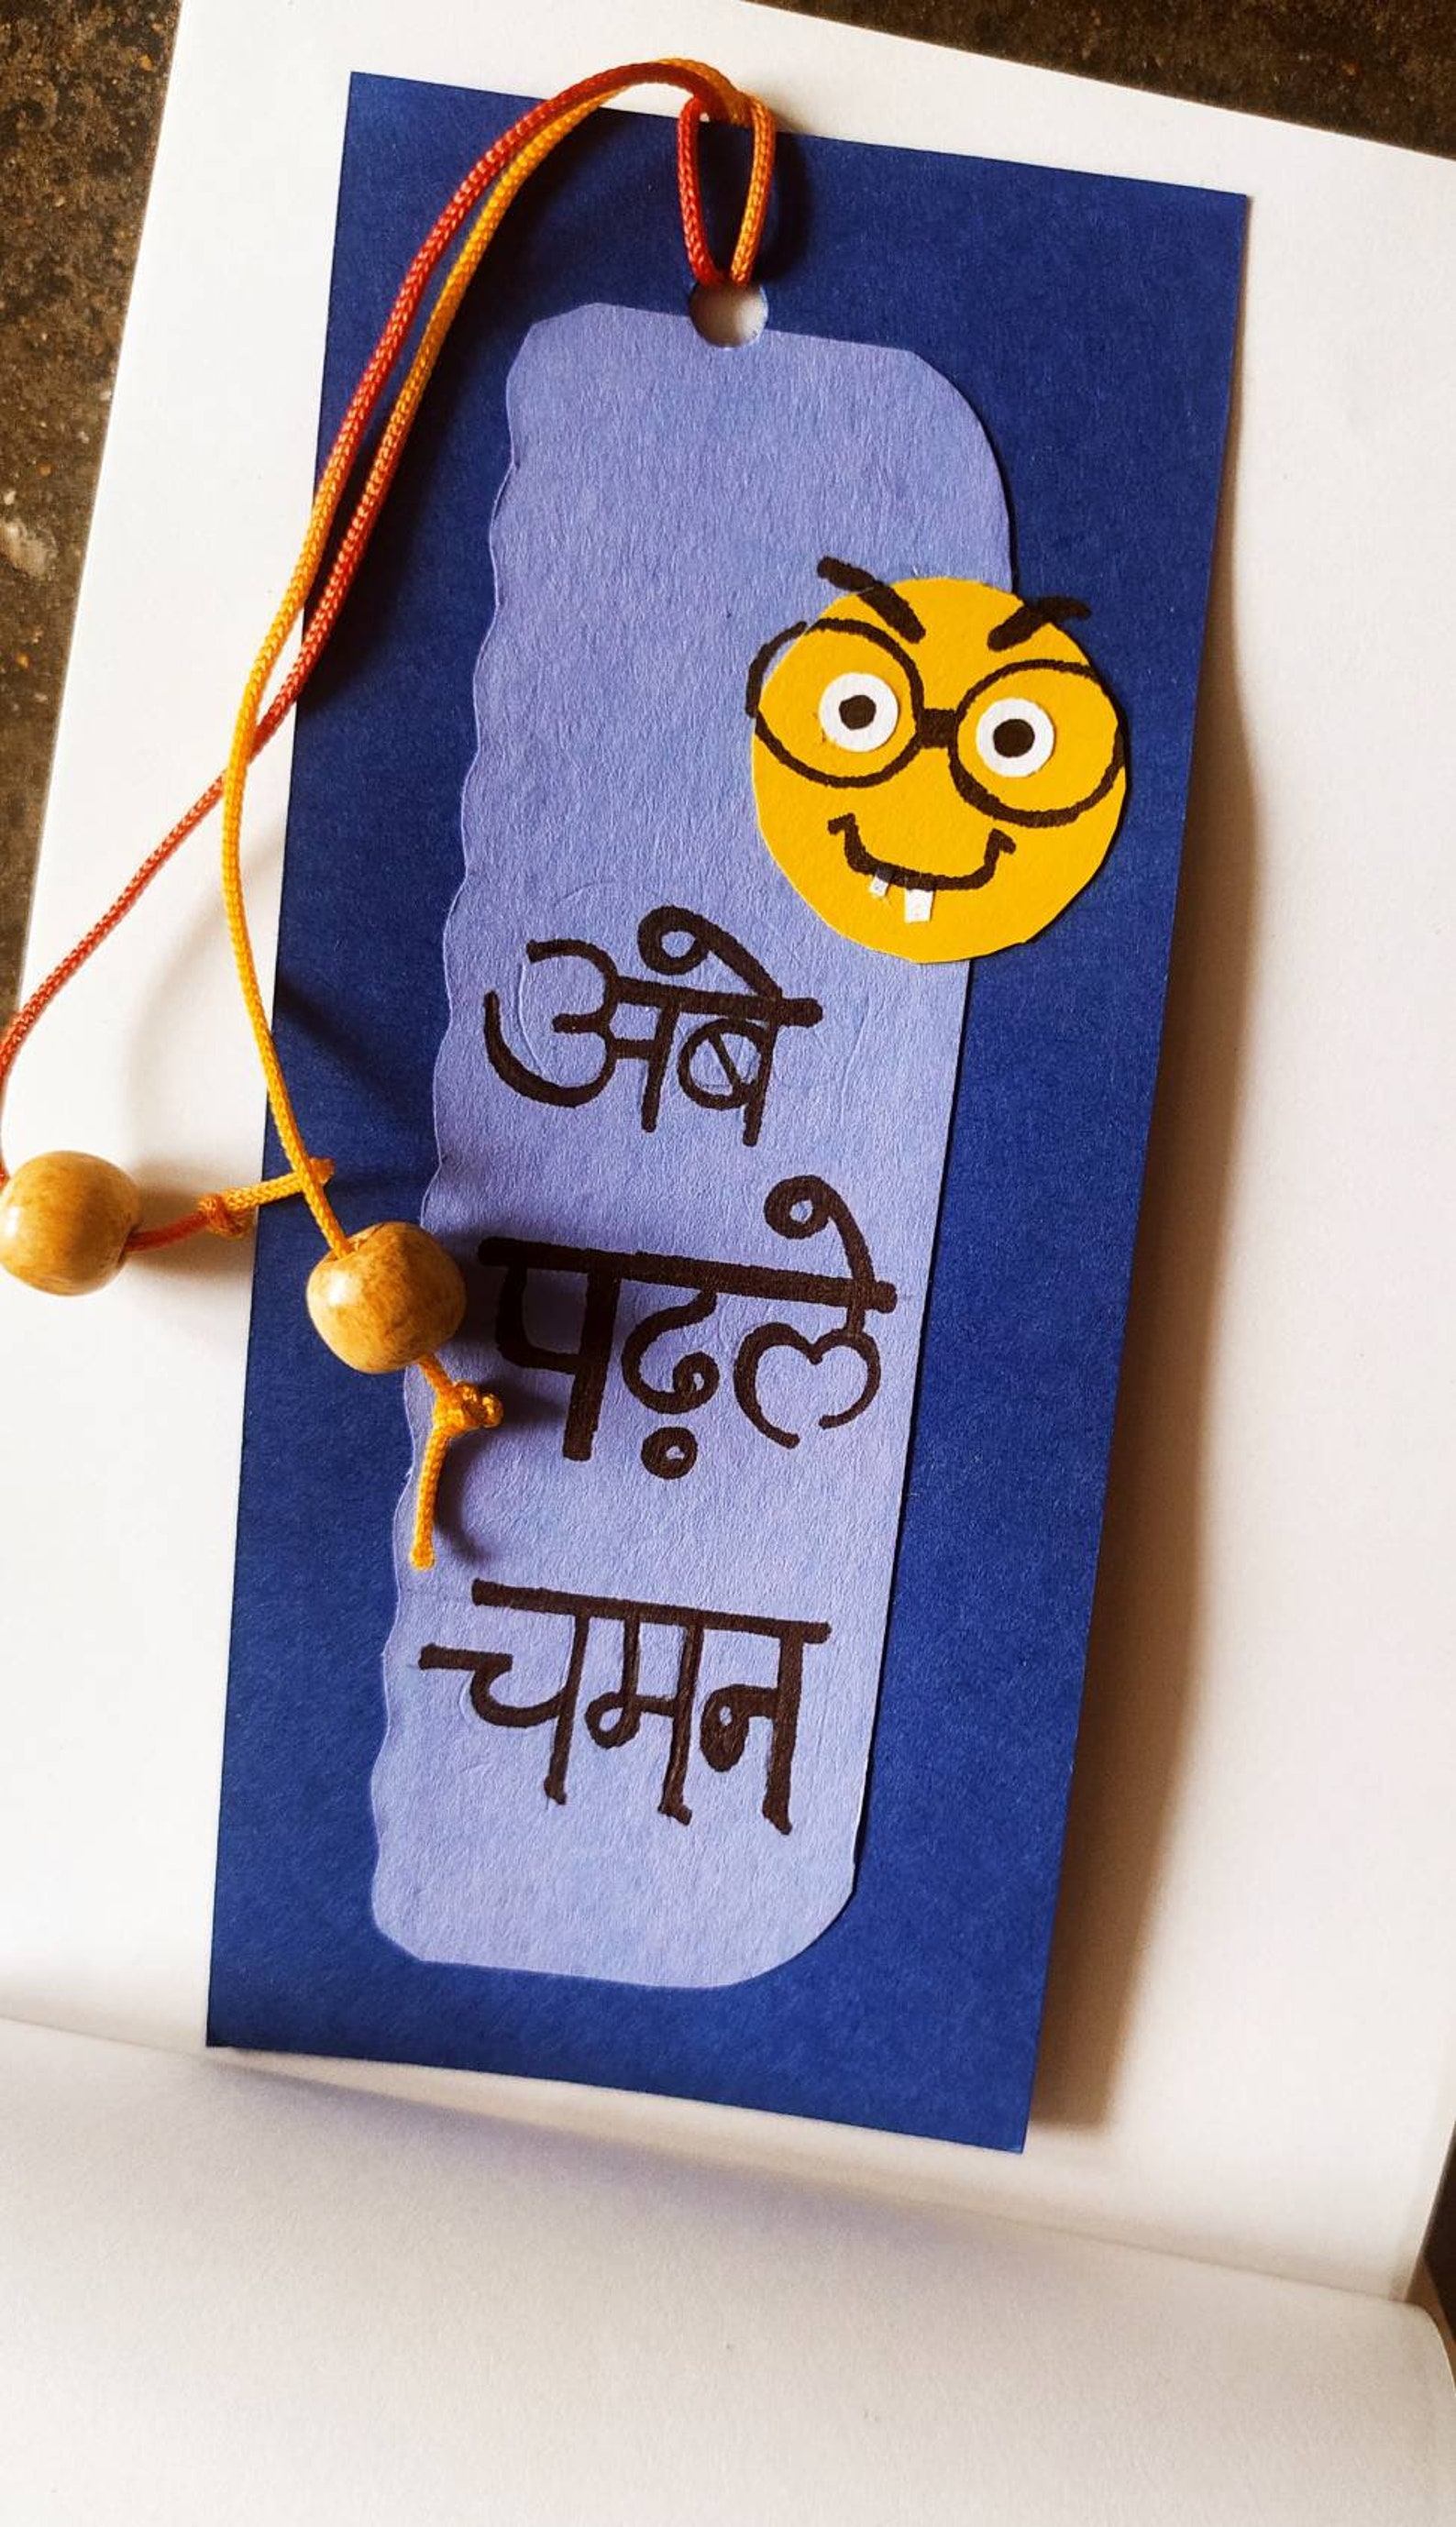 अबे
पढ़ले
चमन